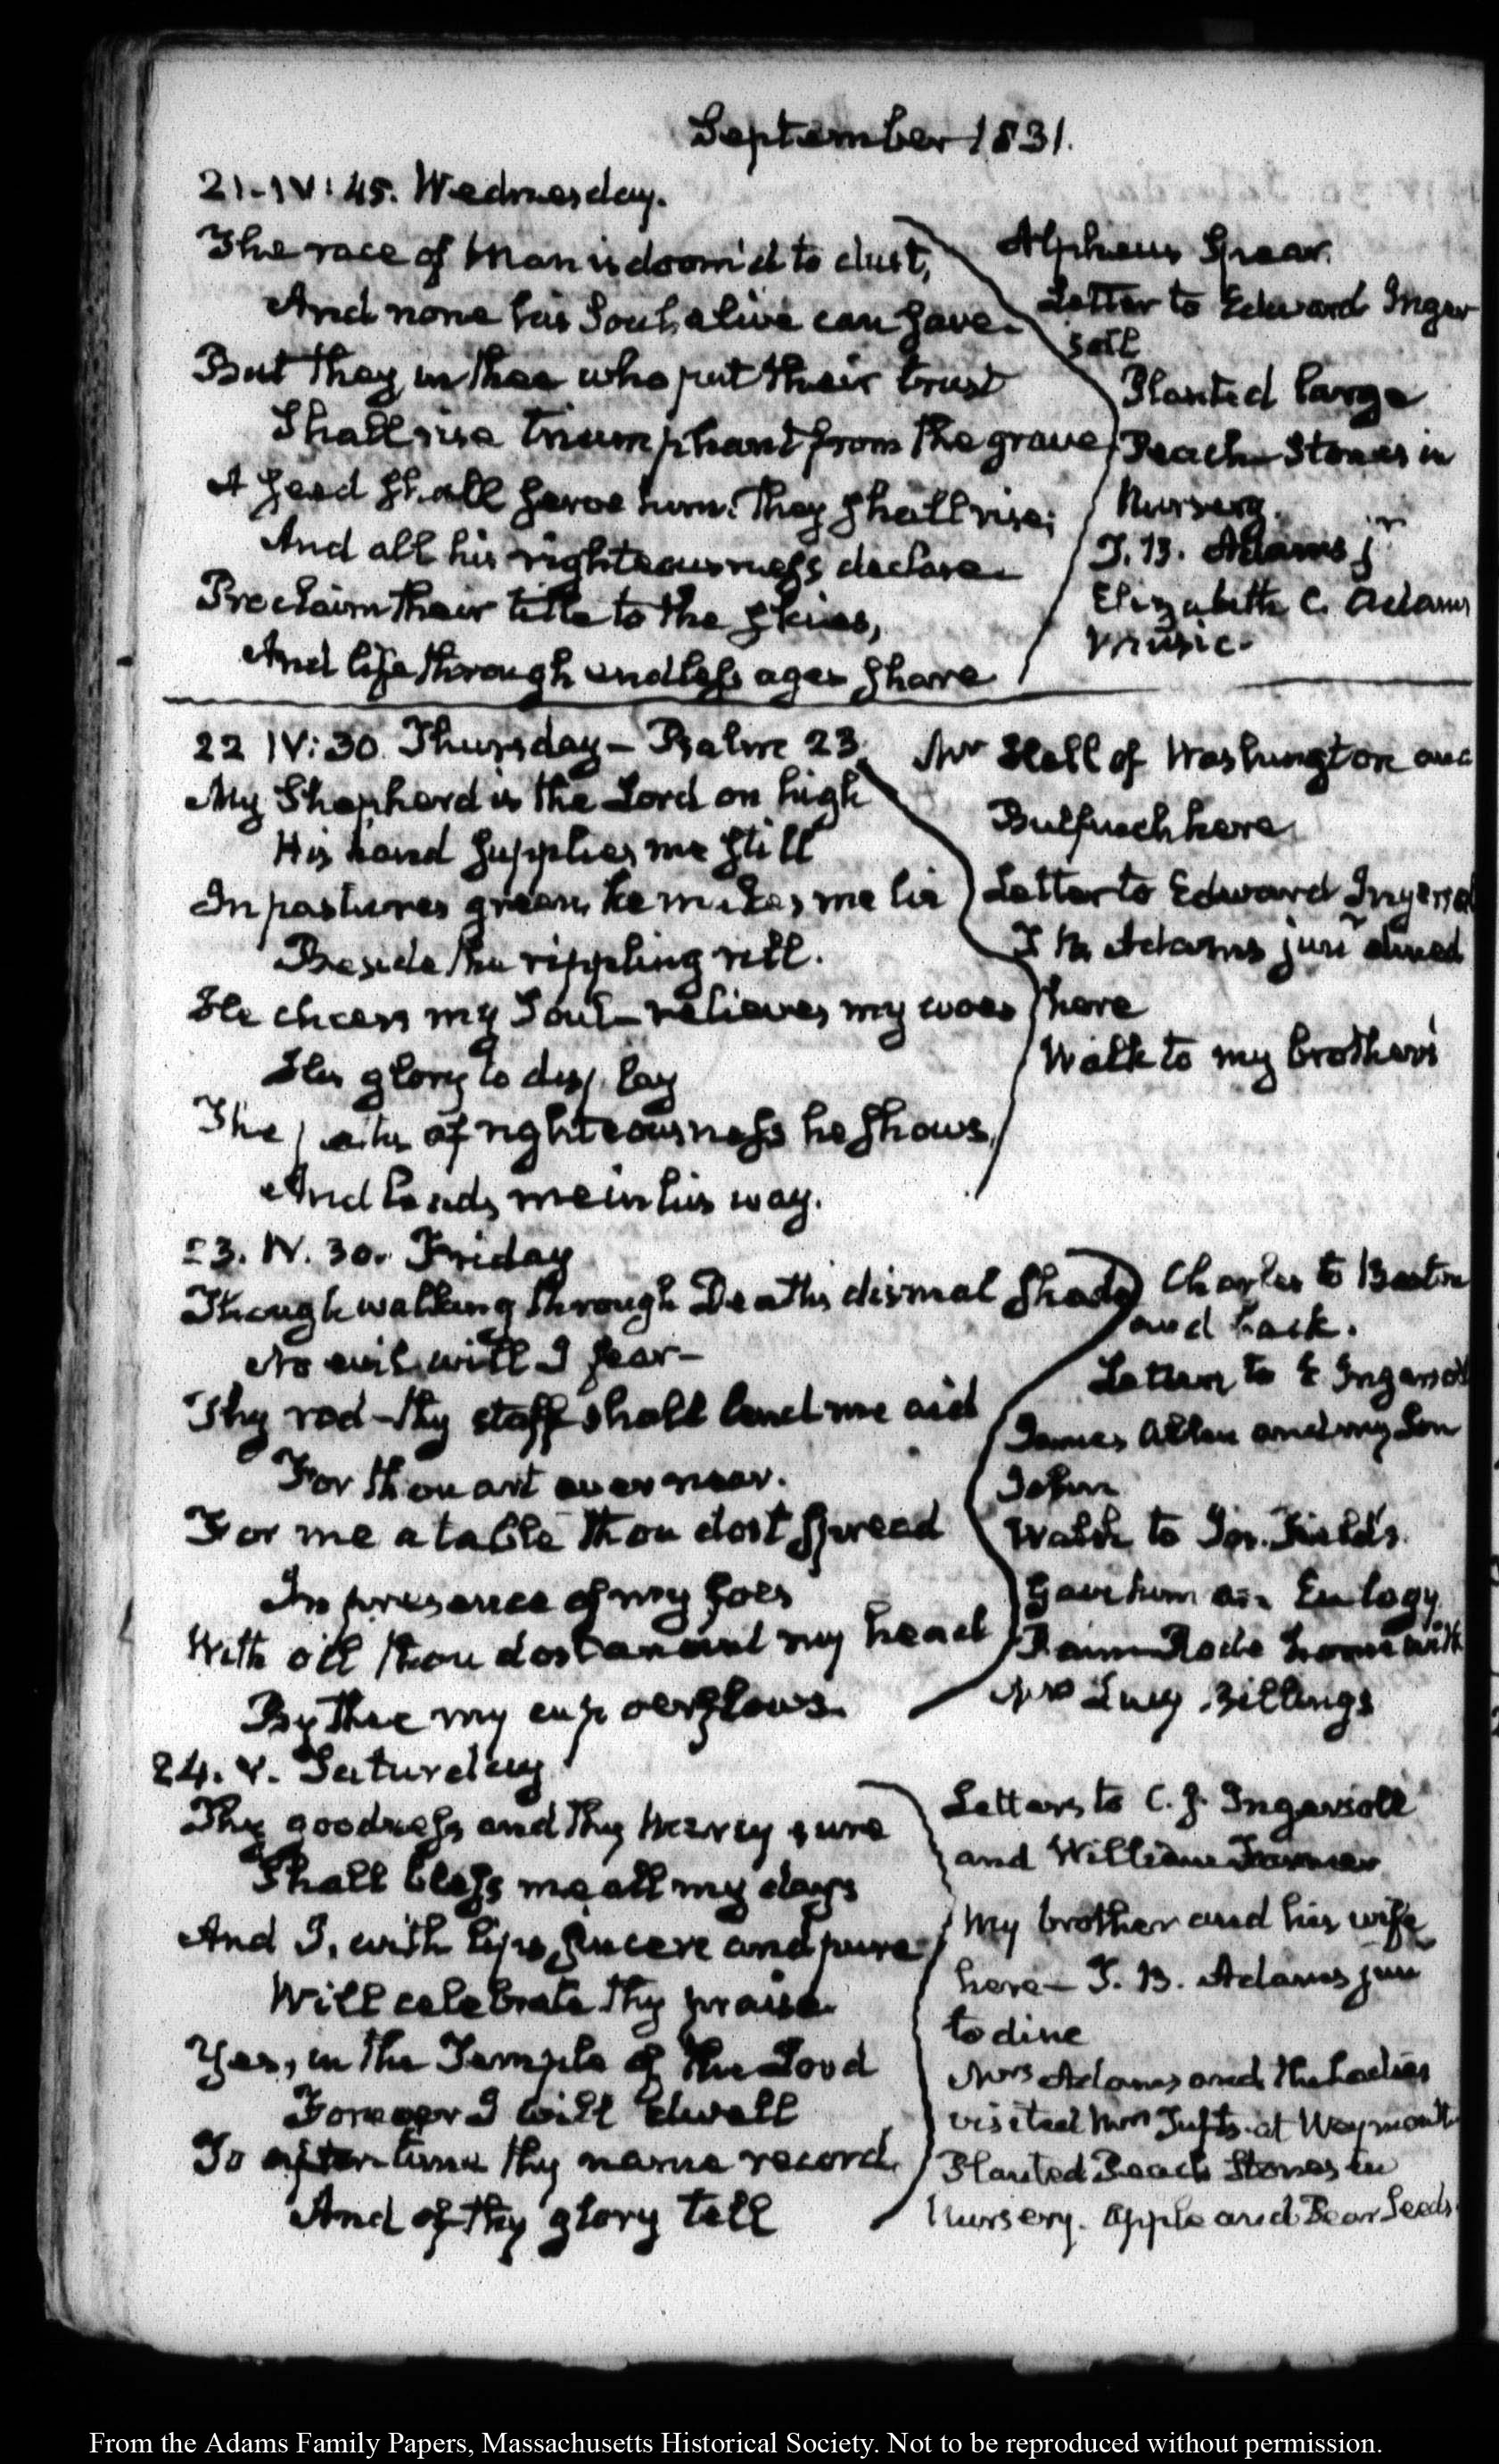 September 1831.
21. IV: 45. Wednesday.
The race of Man is doom'd to dust,
And none his Soul alive can save.
But they in thee who put their trust
Shall rise triumphant from the grave.
A seed shall serve him. They shall rise;
And all his righteousness declare
Proclaim their title to the skies,
And life through endless ages share
Alpheus Spear.
Letter to Edward Inger
soll
Planted large
Peach Stones in
Nursery.
T. B. Adams jr
Elizabeth C. Adams
Music.
22 IV: 30. Thursday – Psalm 23.
My Shepherd is the Lord on high
His hand supplies me still
In pastures green, he makes me lie
Beside the rippling rill.
He cheers my Soul – relieves my woes
His glory to display
The paths of righteousness he shows,
And leads me in his way.
Mr Hall of Washington and
Bulfinch here
Letter to Edward Ingersol
T B. Adams junr dined
here
Walk to my brother's
23. IV. 30. Friday
Though walking through Death's dismal shade
No evil will I fear –
Thy rod – thy staff shall lend me aid
For thou art ever near.
For me a table thou dost spread
In presence of my foes
With oil thou dost anoint my head
By thee my cup o'erflows.
Charles to Boston
and back.
Letter to E Ingersol
James Allen and my Son
John
Walk to Jos. Field's.
Gave him an Eulogy
Rain – Rode home with
Mrs Lucy Billings
24. V. Saturday
Thy goodness and thy Mercy sure
Shall bless me all my days
And I, with lips sincere and pure
Will celebrate thy praise.
Yes, in the Temple of the Lord
Forever I will dwell
To after time thy name record,
And of thy glory tell
Letters to C. J. Ingersoll
and William
My brother and his wife
here – T. B. Adams jun
to dine
Mrs Adams and the Ladies
visited Mrs Tufts at Weymouth
Planted Peach Stones in
Nursery. Apple and Pear Seeds.
From the Adams Family Papers, Massachusetts Historical Society. Not to be reproduced without permission.